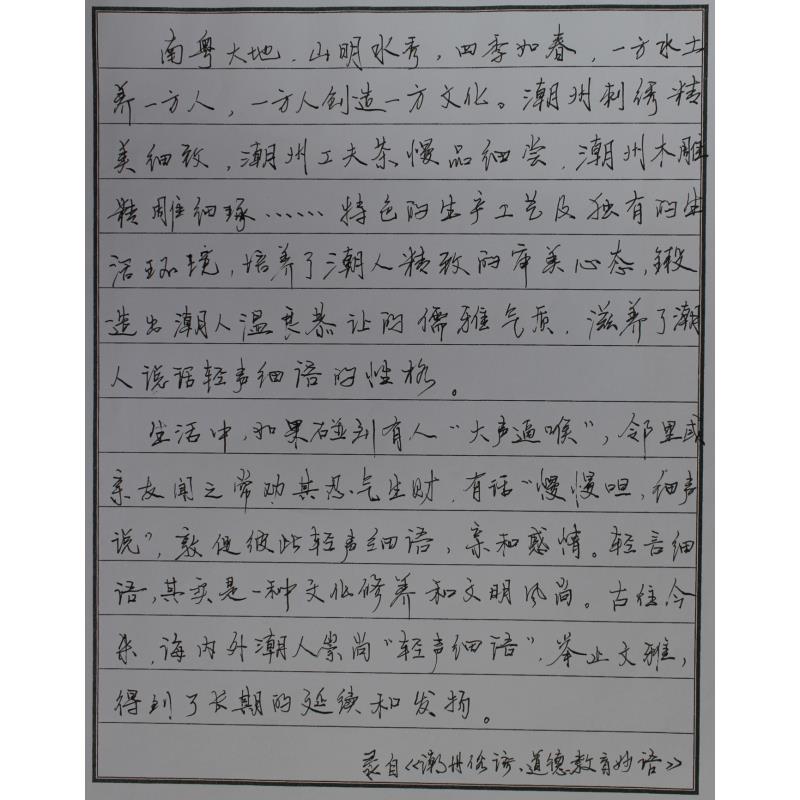 南粤大地，山明水秀，四季如春，一方水土
养一方人，一方人创造一方文化。潮州刺绣精
美细致，潮州工夫茶慢品细尝，潮州木雕
精雕细琢……特色的生产工艺及独有的生
活环境，培养了潮人精致的审美心态，锻
造出潮人温良恭让的儒雅气质，滋养了潮
人说话轻声细语的性格。
生活中，如果碰到有人“大声逼喉”，邻里或
亲友闻之常劝其忍气生财，有话“慢慢呾，细声
说”，敦促彼此轻声细语，亲和感情。轻言细
语，其实是一种文化修养和文明风尚。古往今
来，海内外潮人崇尚“轻声细语”，举止文雅，
得到了长期的延续和发扬。
录自《潮州俗语、道德教育妙语》